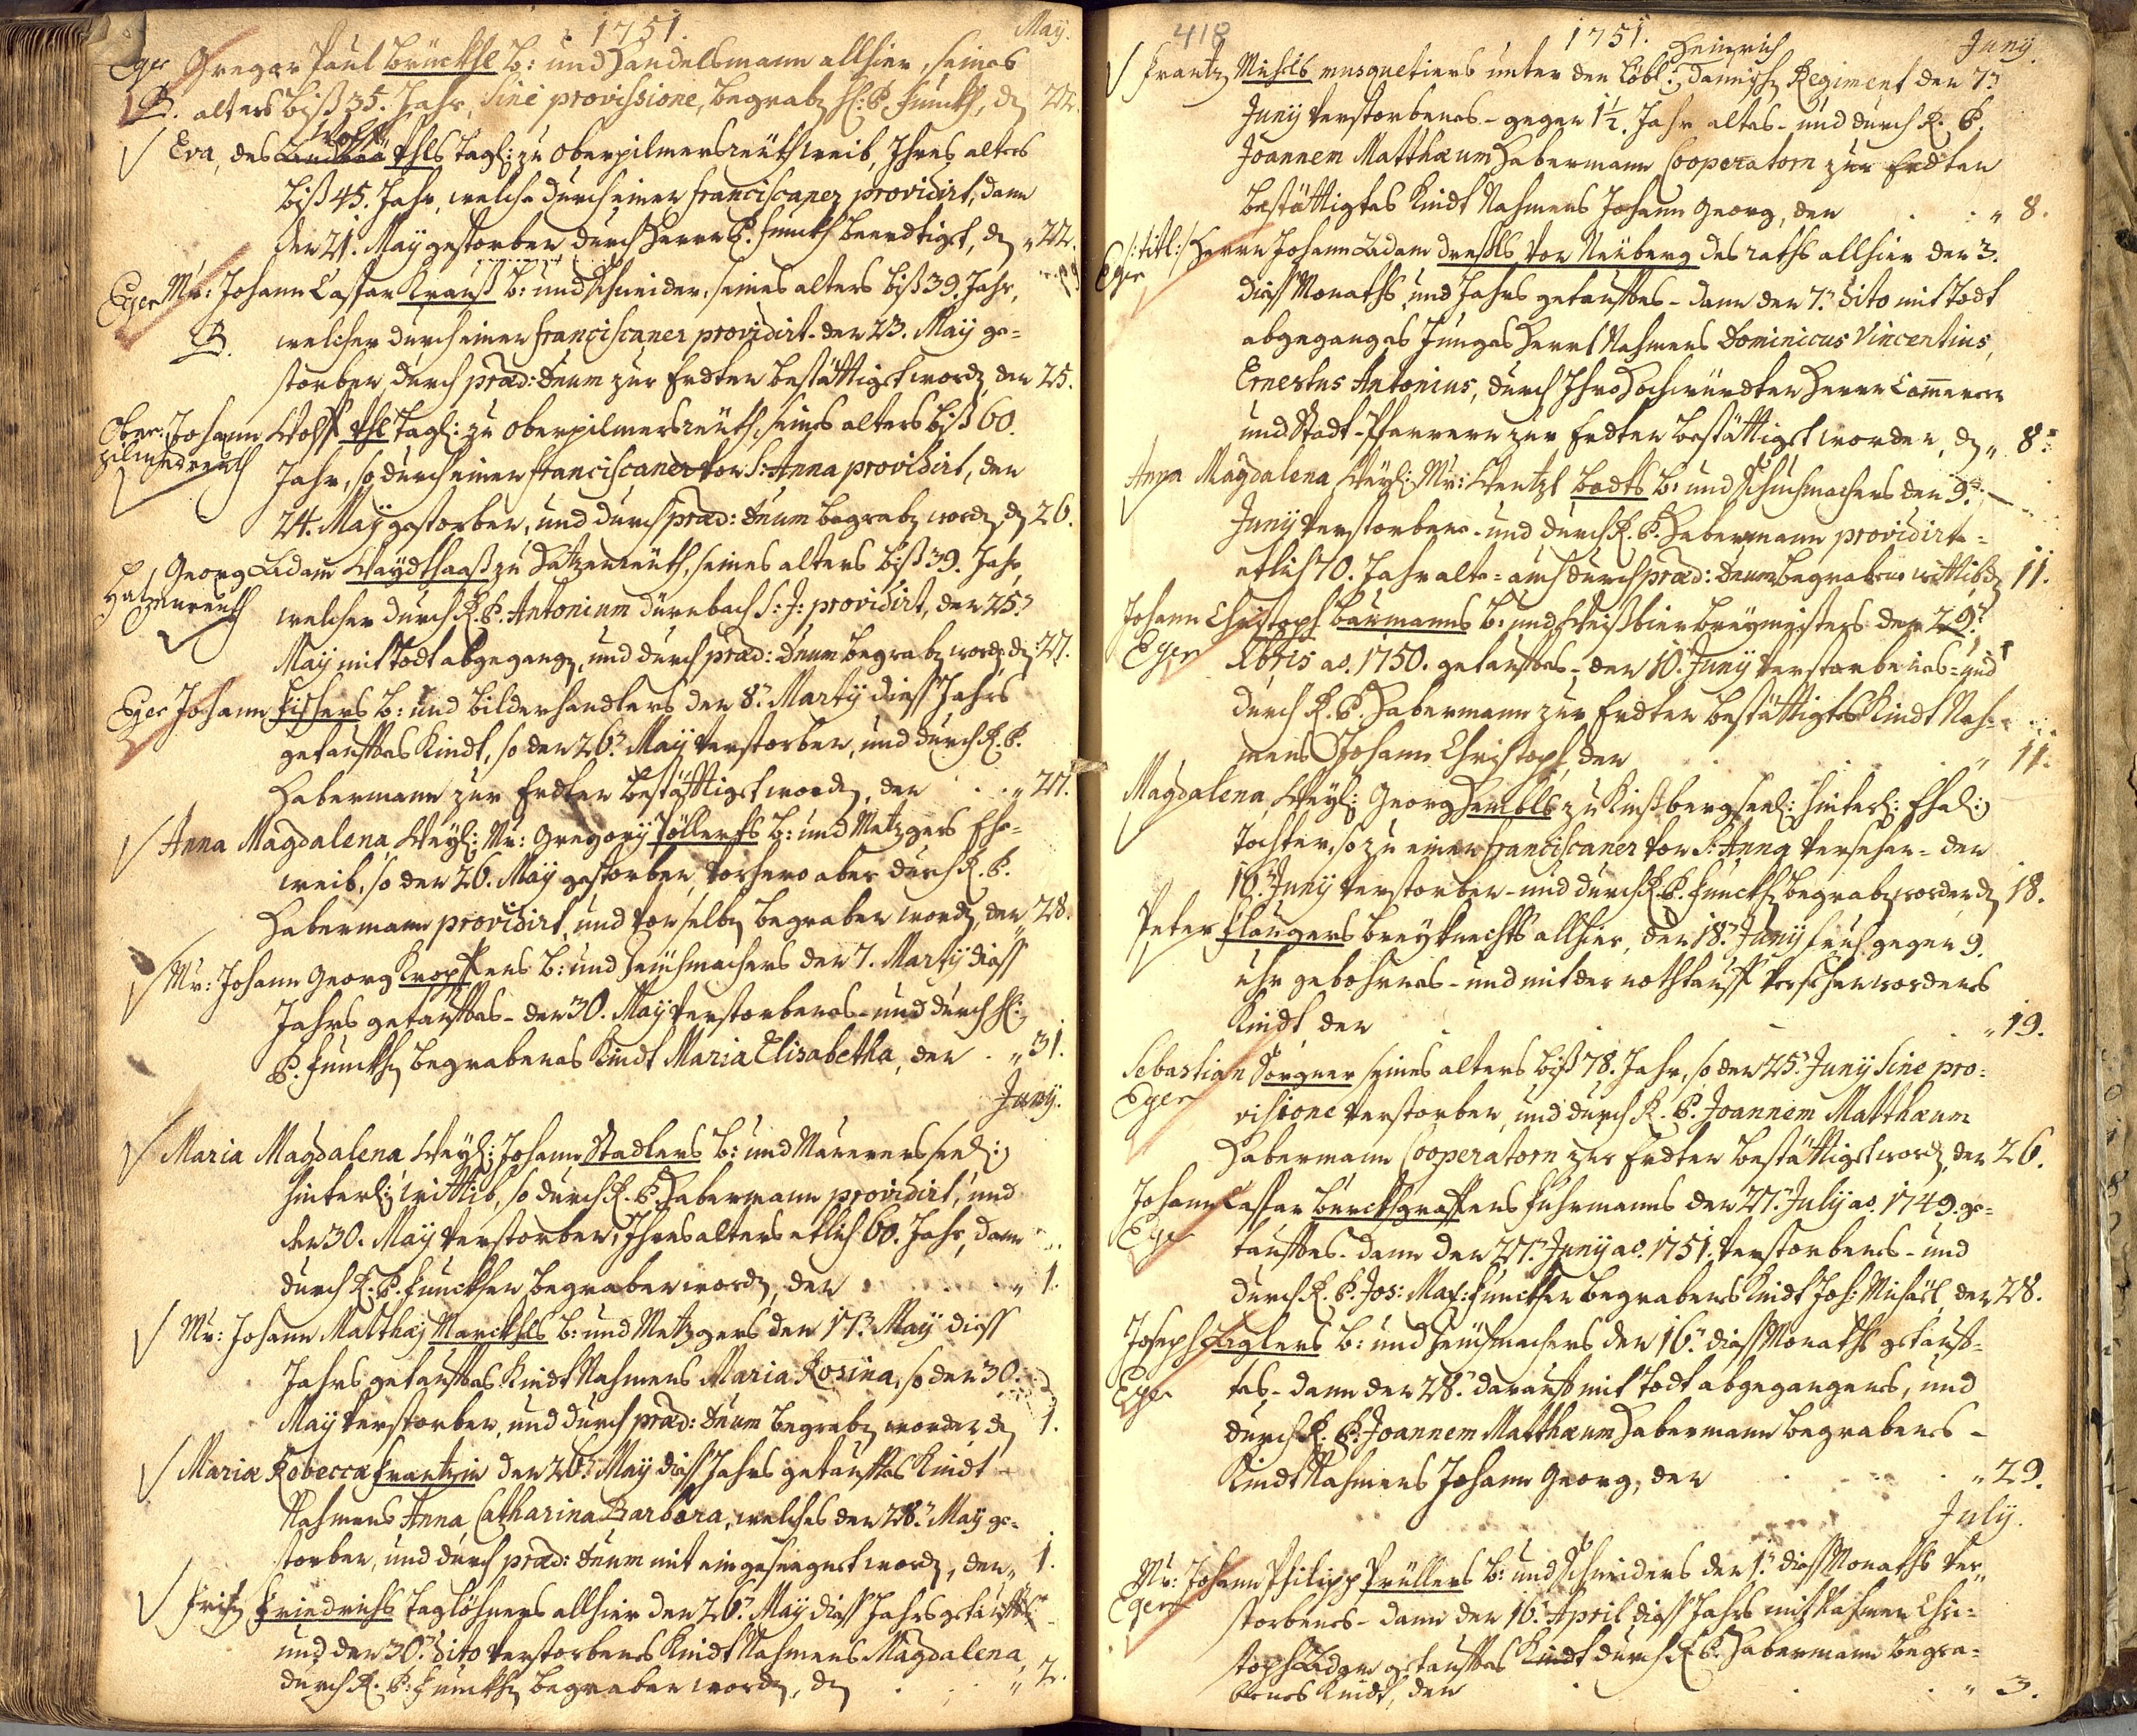 1751.
May.
Eger Gregor Paul Brückhl B: und Handelsmann allhier, seines
B. alters biß 35. Jahr, sine provisione, begrabn H: P. Funckh, dn 22.
Eva, des Wolff Ihls tagl: zu Oberpilmersreuth weib, Ihres alters
biß 45. Jahr, welche durch einen franciscaner providirt, dann
den 21. May gestorben durch Herrn P. Funckh beerdtiget, dn 22.
Eger Mr: Johann Caspar Krauß B: und schneider, seines alters biß 39. Jahr,
B. welcher durch einen franciscaner providirt. den 23. May ge-
storben, durch præd: Dnum zur Erdten bestättiget wordn, den 25.
Ober- Johann Wolff Ihl tagl: zu Oberpilmersreuth, seines alters biß 60.
pilmersreuth
Jahr, so durch einen franciscaner von S: Anna providirt, den
24. May gestorben, und durch præd: Dnum begrabn wordn, dn 26.
Georg Adam Waydthaaß zu Hatzenreuth, seines alters biß 39. Jahr,
Hatzenreuth
welcher durch R. P. Antonium Dürnbach S: J: providirt, den 25.
May mit todt abgegangn, und durch præd: Dnum begrabn wordn, dn 27.
Eger Johann Fischers B: und bilderhandlers den 8. Marty diess Jahrs
getaufftes Kindt, so den 26. May verstorben, und durch R. P.
Habermann zur Erdten bestättiget wordn, den 27.
Anna Magdalena, Weyl: Mr: Gregory Söllerths B: und Metzgers Ehe-
weib, so den 26. May gestorben, vorhero aber durch R. P.
Habermann providirt, und von selbn begraben wordn, den 28.
Mr: Johann Georg Kropffens B: und zeuchmachers den 7. Marty diess
Jahrs getaufftes- den 30. May verstorbenes- und durch H:
P. Funckhn begrabenes Kindt Maria Elisabetha, den 31.
Juny.
Maria Magdalena, Weyl: Johann Stadlers B: und Maurers seel:
hinterl: wittib, so durch R. P. Habermann providirt, und
den 30. May verstorben, Ihres alters etlich 60. Jahr, dann
durch R. P. Funckhen begraben wordn, den 1.
Mr: Johann Matthæy Marckhls B: und Metzgers den 17. May diess
Jahrs getaufftes Kindt Nahmens Maria Rosina, so den 30.
May verstorben, und durch præd: Dnum begrabn worden, dn 1.
Mariæ Rebeccæ Frantzin den 26. May diess Jahrs getaufftes Kindt
Nahmens Anna Catharina Barbara, welches den 28. May ge-
storben, und durch præd: Dnum mit eingesegnet wordn, den 1.
Friedrichs taglöhners allhier den 26. May diess Jahrs getaufftes
und den 30. dito verstorbenes Kindt Nahmens Magdalena,
durch R. P. Funckhn begraben wordn, dn 2.
418
1751.
Juny.
Heinrich
Frantz Michls musquetiers unter den löbl: Dannisch Regiment den 7.
Juny verstorbenes- gegen 1½. Jahr altes- und durch R. P.
Joannem Matthæum Habermann Cooperatorn zur Erdten
bestättigtes Kindt Nahmens Johann Georg, den 8.
/: titl: / Herrn Johann Adam von Neuberg des raths allhier den 3.
Eger
diess Monaths und Jahrs getaufftes- dann den 7. dito mit todt
abgeganges Junges Herrl Nahmens Dominicus Vincentius,
Ernestus Antonius, durch Ihro Hochwürdten Herrn Cammerer
und Stadt-Pfarrern zur Erdten bestättiget worden, dn 8.
Anna Magdalena, Weyl: Mr: Wentzl Badts B: und schuchmachers den 9.
Juny verstorbene- und durch R. P. Habermann providirte-
etlich 70. Jahr alte- auch durch præd: Dnum begrabene wittib, dn 11.
Johann Christoph Baumanns B: und Weißbier breymeisters den 29.
Eger
Xbris ao. 1750. getaufftes- den 10. Juny verstorbenes- und
durch R. P. Habermann zur Erdten bestättigtes Kindt Nah-
mens Johann Christoph, den 11.
Magdalena, Weyl: Georg zu Kinßberg seel: hinterl: Ehel:
tochter, so zu einen franciscaner von S: Anna versehen- den
16. Juny verstorben- und durch R. P. Funckhn begrabn worden, dn 18.
Peter Flaugers breyknechts allhier, den 18. Juny fruh gegen 9.
uhr gebohrnes- und mit der nothtauff versehen wordenes
Kindt, den 19.
Sebastian Sorgner seines alters biß 78. Jahr, so den 25. Juny sine pro-
Eger
visione verstorben, und durch R. P. Joannem Matthæum
Habermann Cooperatorn zur Erdten bestättiget wordn, den 26.
Johann Caspar Burckhgraffens fuhrmanns den 27. July ao. 1749. ge-
Eger
taufftes- dann den 27. Juny ao. 1751. verstorbenes- und
durch R. P. Jos: Max: Funckhen begrabenes Kindt Joh: Michäel, den 28.
Joseph Zieglers B: und zeuchmachers den 16. diess Monaths getauff-
Eger
tes- dann den 28. darauff mit todt abgegangenes, und
durch R. P. Joannem Matthæum Habermann begrabenes-
Kindt Nahmens Johann Georg, den 29.
July.
Mr: Johann Philipp Prüllers B: und schneiders den 1. diess Monaths ver-
Eger
storbenes- dann den 16. April diess Jahrs mit Nahmen Chri-
stoph Adam getaufftes Kindt durch R. P. Habermann begra-
benes Kindt, den 3.